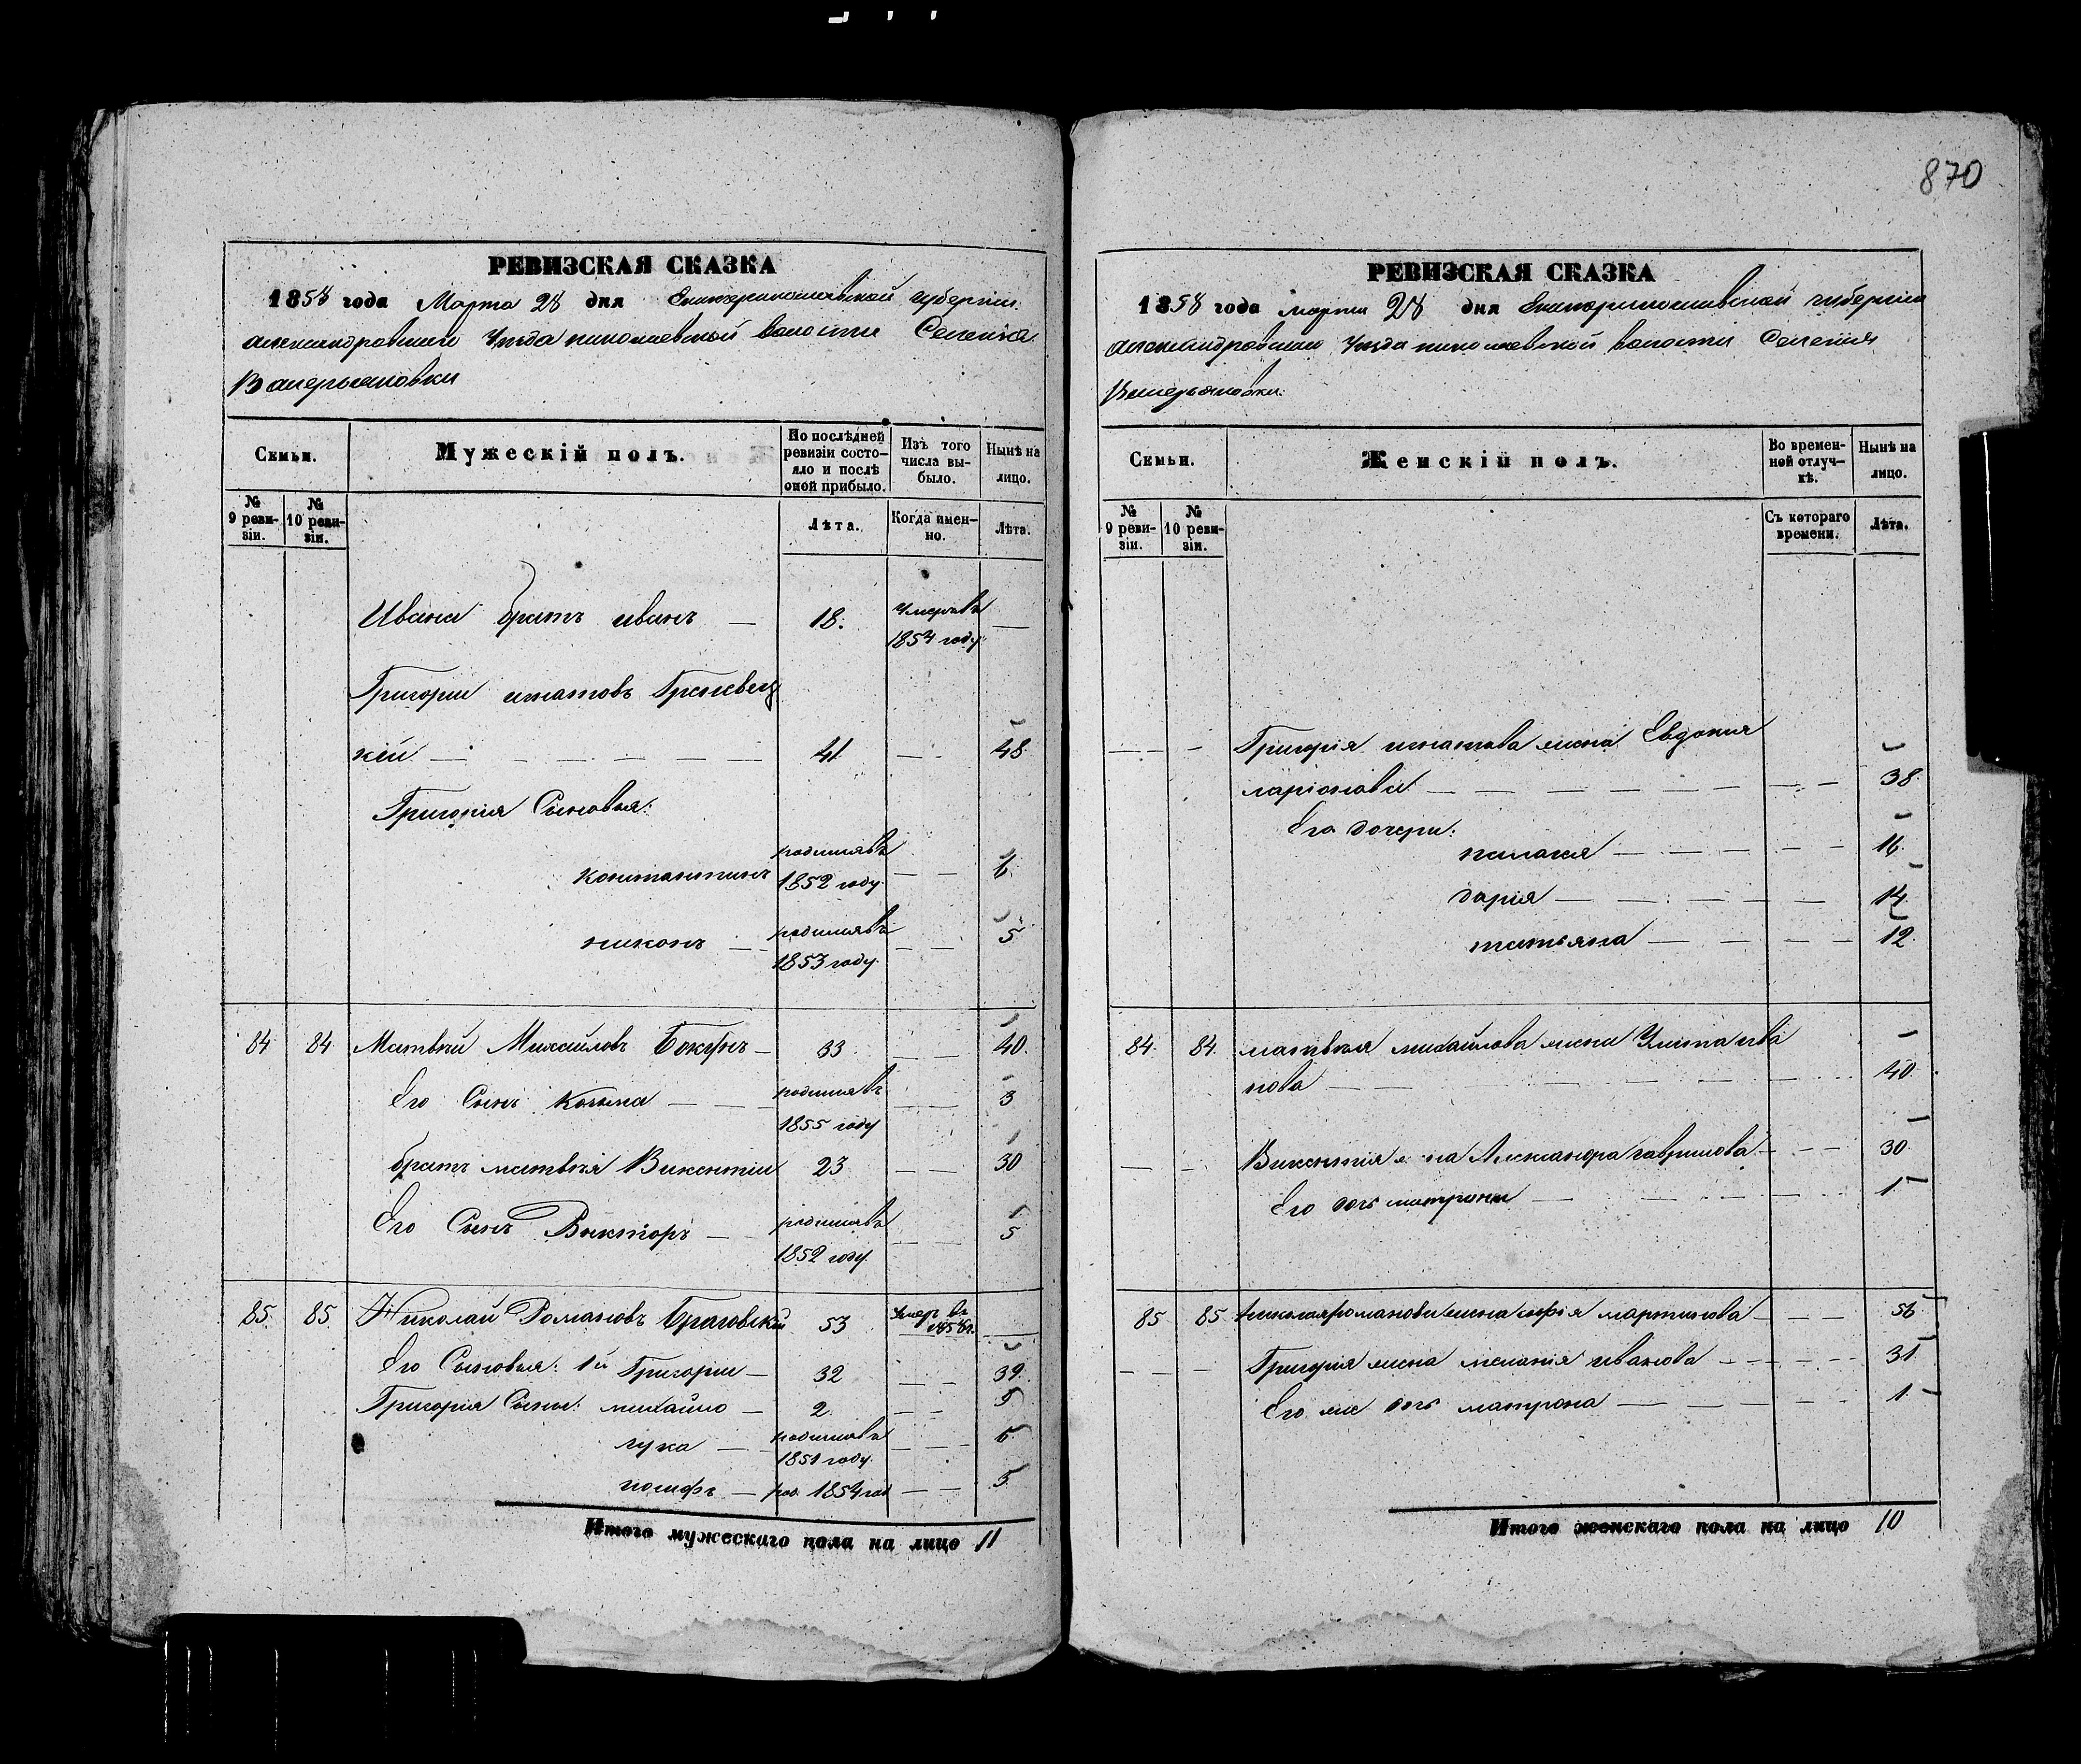 870
РЕВИЗСКАЯ СКАЗКА
1858 года Марта 28 дня Екатеринославской губернии
александровскаго Уезда николаевской волости Селенія
Валерьяновки
Семьи.
Мужескій полъ.
По послѣдней ревизіи состо-
яло и послѣ
оной прибыло.
Изъ того
числа вы-
было.
Нынѣ на
лицо.
№
9 реви-
зіи.
№
10 реви-
зіи.
Лѣта.
Когда имен-
но.
Лѣта.
Ивана братъ иванъ 18. Умеръ въ
1854 году
Григории игнатовъ
кій 41 48
Григорія Сыновья:
константинъ родился въ
1852 году 6
никонъ родился въ
1853 году 5
84 84 Матвей Михайловъ Бокунъ 33 40.
Его Сынъ Козьма родился въ
1855 году 3
братъ матвея Викентии 23 30
Его Сынъ Викторъ родился въ
1852 году 5
85 85 Николай Романовъ 53 Умеръ въ
185 г.
Его Сыновья: 1й Григории 32 39.
Григорія Сыны: михайло 2 5
лука родился въ
1851 году 6
иосифъ род. 1854 год 5
Итого мужескаго пола на лицо 11
РЕВИЗСКАЯ СКАЗКА
1858 года марта 28 дня Екатеринославской губерніи
александровскаго Уезда николаевской волости Селенія
Валерьяновки.
Семьи.
Женскій полъ.
Во времен-
ной отлуч-
кѣ.
Нынѣ на
лицо.
№
9 реви-
зіи.
№
10 реви-
зіи.
Съ котораго
времени.
Лѣта.
Григорія игнатова жена Евдокия
ларіонова 38.
Его дочери:
пелагея 16.
дарія 14.
татьяна 12.
84. 84. матвея михайлова жена Улита ива
нова 40.
Викентия жена Александра гаврилова 30.
Его дочь матрона 1
85 85 николая романова жена софія мартинова 56
Григорія жена меланія иванова 31.
Его же дочь матрона 1.
Итого женскаго пола на лицо 10